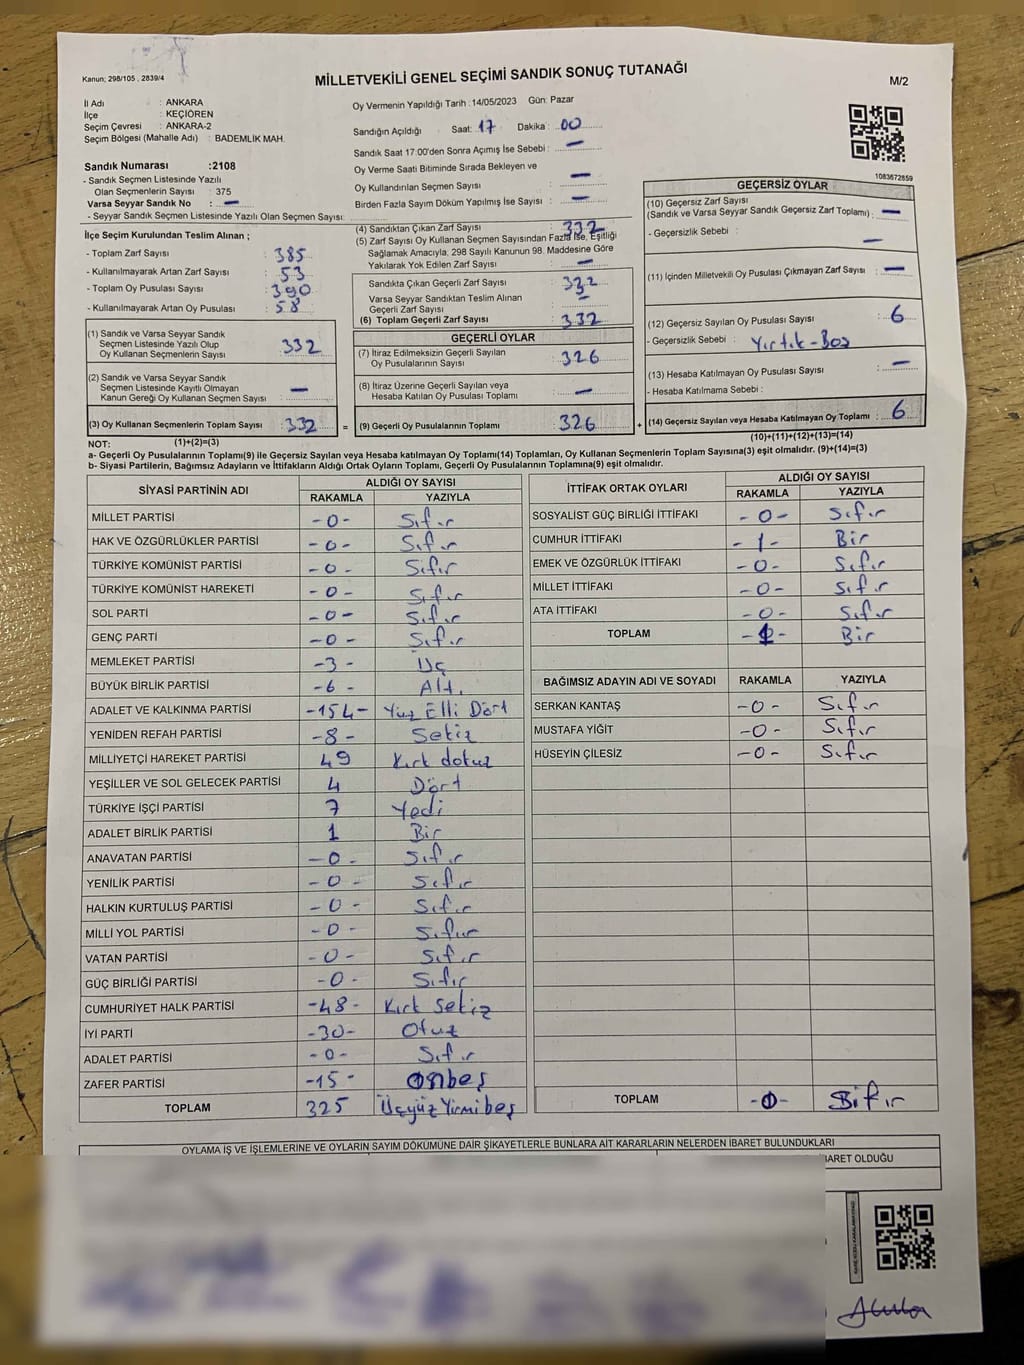 Kanun; 298/105 . 2839/4
MİLLETVEKİLİ GENEL SEÇİMİ SANDIK SONUÇ TUTANAĞI
M/2
İl Adı : ANKARA
İlçe : KEÇİÖREN
Seçim Çevresi : ANKARA-2
Seçim Bölgesi (Mahalle Adı) : BADEMLİK MAH.
Sandık Numarası :2108
- Sandık Seçmen Listesinde Yazılı
Olan Seçmenlerin Sayısı : 375
Varsa Seyyar Sandık No : -
- Seyyar Sandık Seçmen Listesinde Yazılı Olan Seçmen Sayısı:
Oy Vermenin Yapıldığı Tarih :14/05/2023 Gün: Pazar
Sandığın Açıldığı Saat: 17 Dakika : 00
Sandık Saat 17:00'den Sonra Açımış İse Sebebi : -
Oy Verme Saati Bitiminde Sırada Bekleyen ve
Oy Kullandırılan Seçmen Sayısı : -
Birden Fazla Sayım Döküm Yapılmış İse Sayısı : -
1083672859
İlçe Seçim Kurulundan Teslim Alınan ;
- Toplam Zarf Sayısı : 385
- Kullanılmayarak Artan Zarf Sayısı : 53
- Toplam Oy Pusulası Sayısı : 390
- Kullanılmayarak Artan Oy Pusulası : 58
(1) Sandık ve Varsa Seyyar Sandık
Seçmen Listesinde Yazılı Olup
Oy Kullanan Seçmenlerin Sayısı : 332
(2) Sandık ve Varsa Seyyar Sandık
Seçmen Listesinde Kayıtlı Olmayan
Kanun Gereği Oy Kullanan Seçmen Sayısı : -
(3) Oy Kullanan Seçmenlerin Toplam Sayısı : 332
(4) Sandıktan Çıkan Zarf Sayısı : 332
(5) Zarf Sayısı Oy Kullanan Seçmen Sayısından Fazla İse, Eşitliği
Sağlamak Amacıyla, 298 Sayılı Kanunun 98. Maddesine Göre
Yakılarak Yok Edilen Zarf Sayısı : -
Sandıkta Çıkan Geçerli Zarf Sayısı : 332
Varsa Seyyar Sandıktan Teslim Alınan
Geçerli Zarf Sayısı : -
(6) Toplam Geçerli Zarf Sayısı : 332
GEÇERLİ OYLAR
(7) İtiraz Edilmeksizin Geçerli Sayılan
Oy Pusulalarının Sayısı : 326
(8) İtiraz Üzerine Geçerli Sayılan veya
Hesaba Katılan Oy Pusulası Toplamı : -
= (9) Geçerli Oy Pusulalarının Toplamı : 326 +
GEÇERSİZ OYLAR
(10) Geçersiz Zarf Sayısı
(Sandık ve Varsa Seyyar Sandık Geçersiz Zarf Toplamı) : -
- Geçersizlik Sebebi : -
(11) İçinden Milletvekili Oy Pusulası Çıkmayan Zarf Sayısı : -
(12) Geçersiz Sayılan Oy Pusulası Sayısı : 6
- Geçersizlik Sebebi : Yırtık-Boş
(13) Hesaba Katılmayan Oy Pusulası Sayısı : -
- Hesaba Katılmama Sebebi :
(14) Geçersiz Sayılan veya Hesaba Katılmayan Oy Toplamı : 6
NOT: (1)+(2)=(3)
(10)+(11)+(12)+(13)=(14)
a- Geçerli Oy Pusulalarının Toplamı(9) ile Geçersiz Sayılan veya Hesaba katılmayan Oy Toplamı(14) Toplamları, Oy Kullanan Seçmenlerin Toplam Sayısına(3) eşit olmalıdır. (9)+(14)=(3)
b- Siyasi Partilerin, Bağımsız Adayların ve İttifakların Aldığı Ortak Oyların Toplamı, Geçerli Oy Pusulalarının Toplamına(9) eşit olmalıdır.
SİYASİ PARTİNİN ADI ALDIĞI OY SAYISI
RAKAMLA YAZIYLA
MİLLET PARTİSİ -0- Sıfır
HAK VE ÖZGÜRLÜKLER PARTİSİ -0- Sıfır
TÜRKİYE KOMÜNİST PARTİSİ -0- Sıfır
TÜRKİYE KOMÜNİST HAREKETİ -0- Sıfır
SOL PARTİ -0- Sıfır
GENÇ PARTİ -0- Sıfır
MEMLEKET PARTİSİ -3- Üç
BÜYÜK BİRLİK PARTİSİ -6- Altı
ADALET VE KALKINMA PARTİSİ -154- Yüz Elli Dört
YENİDEN REFAH PARTİSİ -8- Sekiz
MİLLİYETÇİ HAREKET PARTİSİ 49 Kırk dokuz
YEŞİLLER VE SOL GELECEK PARTİSİ 4 Dört
TÜRKİYE İŞÇİ PARTİSİ 7 Yedi
ADALET BİRLİK PARTİSİ 1 Bir
ANAVATAN PARTİSİ -0- Sıfır
YENİLİK PARTİSİ -0- Sıfır
HALKIN KURTULUŞ PARTİSİ -0- Sıfır
MİLLİ YOL PARTİSİ -0- Sıfır
VATAN PARTİSİ -0- Sıfır
GÜÇ BİRLİĞİ PARTİSİ -0- Sıfır
CUMHURİYET HALK PARTİSİ -48- Kırk Sekiz
İYİ PARTİ -30- Otuz
ADALET PARTİSİ -0- Sıfır
ZAFER PARTİSİ -15- Onbeş
TOPLAM 325 Üçyüz Yirmi beş
İTTİFAK ORTAK OYLARI ALDIĞI OY SAYISI
RAKAMLA YAZIYLA
SOSYALİST GÜÇ BİRLİĞİ İTTİFAKI -0- Sıfır
CUMHUR İTTİFAKI -1- Bir
EMEK VE ÖZGÜRLÜK İTTİFAKI -0- Sıfır
MİLLET İTTİFAKI -0- Sıfır
ATA İTTİFAKI -0- Sıfır
TOPLAM -1- Bir
BAĞIMSIZ ADAYIN ADI VE SOYADI RAKAMLA YAZIYLA
SERKAN KANTAŞ -0- Sıfır
MUSTAFA YİĞİT -0- Sıfır
HÜSEYİN ÇİLESİZ -0- Sıfır
TOPLAM -0- Sıfır
OYLAMA İŞ VE İŞLEMLERİNE VE OYLARIN SAYIM DÖKÜMÜNE DAİR ŞİKAYETLERLE BUNLARA AİT KARARLARIN NELERDEN İBARET BULUNDUKLARI
İBARET OLDUĞU